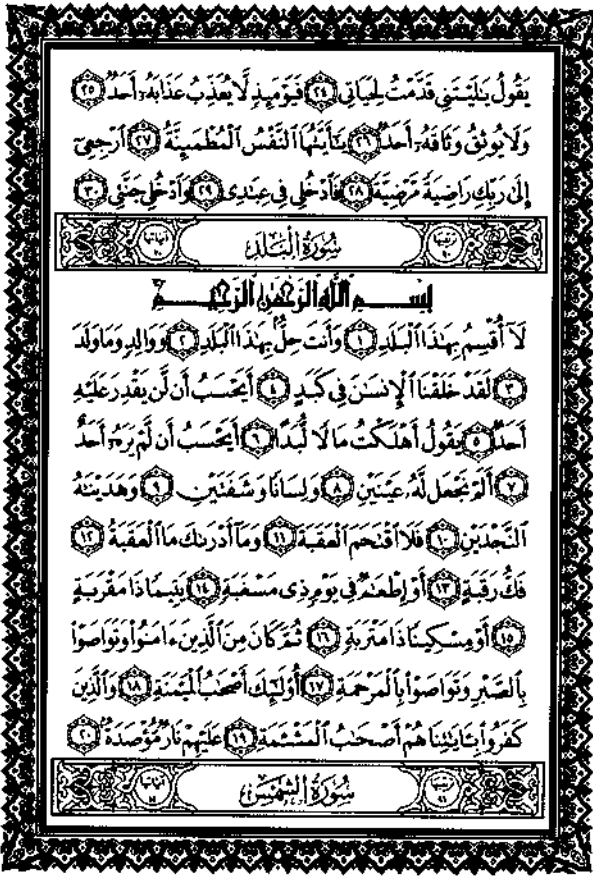 يَقُولُ يَٰلَيْتَنِى قَدَّمْتُ لِحَيَاتِى ٢٤ فَيَوْمَئِذٍ لَّا يُعَذِّبُ عَذَابَهُۥٓ أَحَدٌ ٢٥
وَلَا يُوثِقُ وَثَاقَهُۥٓ أَحَدٌ ٢٦ يَٰٓأَيَّتُهَا ٱلنَّفْسُ ٱلْمُطْمَئِنَّةُ ٢٧ ٱرْجِعِىٓ
إِلَىٰ رَبِّكِ رَاضِيَةً مَّرْضِيَّةً ٢٨ فَٱدْخُلِى فِى عِبَٰدِى ٢٩ وَٱدْخُلِى جَنَّتِى ٣٠
ترتيبها ٩٠ سُورَةُ الْبَلَدِ آياتها ٢٠
بِسْمِ ٱللَّهِ ٱلرَّحْمَٰنِ ٱلرَّحِيمِ
لَآ أُقْسِمُ بِهَٰذَا ٱلْبَلَدِ ١ وَأَنتَ حِلٌّۢ بِهَٰذَا ٱلْبَلَدِ ٢ وَوَالِدٍ وَمَا وَلَدَ
٣ لَقَدْ خَلَقْنَا ٱلْإِنسَٰنَ فِى كَبَدٍ ٤ أَيَحْسَبُ أَن لَّن يَقْدِرَ عَلَيْهِ
أَحَدٌ ٥ يَقُولُ أَهْلَكْتُ مَالًا لُّبَدًا ٦ أَيَحْسَبُ أَن لَّمْ يَرَهُۥٓ أَحَدٌ
٧ أَلَمْ نَجْعَل لَّهُۥ عَيْنَيْنِ ٨ وَلِسَانًا وَشَفَتَيْنِ ٩ وَهَدَيْنَٰهُ
ٱلنَّجْدَيْنِ ١٠ فَلَا ٱقْتَحَمَ ٱلْعَقَبَةَ ١١ وَمَآ أَدْرَىٰكَ مَا ٱلْعَقَبَةُ ١٢
فَكُّ رَقَبَةٍ ١٣ أَوْ إِطْعَٰمٌ فِى يَوْمٍ ذِى مَسْغَبَةٍ ١٤ يَتِيمًا ذَا مَقْرَبَةٍ
١٥ أَوْ مِسْكِينًا ذَا مَتْرَبَةٍ ١٦ ثُمَّ كَانَ مِنَ ٱلَّذِينَ ءَامَنُوا۟ وَتَوَاصَوْا۟
بِٱلصَّبْرِ وَتَوَاصَوْا۟ بِٱلْمَرْحَمَةِ ١٧ أُو۟لَٰٓئِكَ أَصْحَٰبُ ٱلْمَيْمَنَةِ ١٨ وَٱلَّذِينَ
كَفَرُوا۟ بِـَٔايَٰتِنَا هُمْ أَصْحَٰبُ ٱلْمَشْـَٔمَةِ ١٩ عَلَيْهِمْ نَارٌ مُّؤْصَدَةٌۢ ٢٠
ترتيبها ٩١ سُورَةُ الشَّمْسِ آياتها ١٥